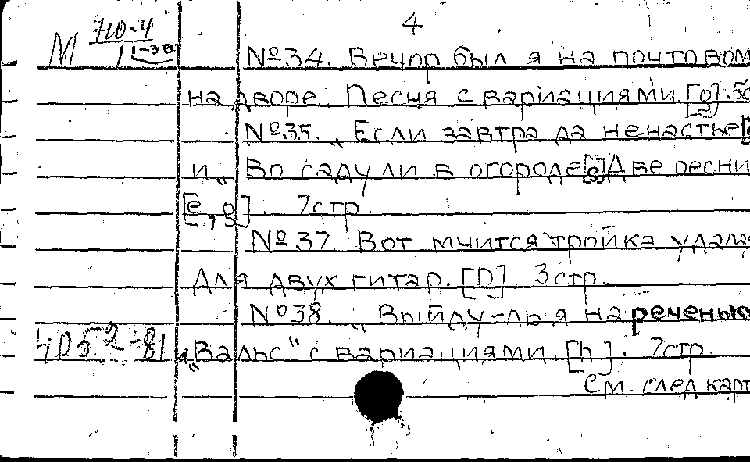 4
М 710-4
1-38
№34. Вечор был я на почтовом
на дворе. Песня с вариациями. [a]. 5с
№35. „Если завтра да ненастье
и „Во саду ли в огороде [e] Две песни
[e, g] 7стр
№37 Вот мчится тройка удала
для двух гитар. [D] 3стр.
№38. „Выйду-ль я на реченью
4052-81 и „Вальс“ с вариациями. [h]. 7стр.
См. след карт